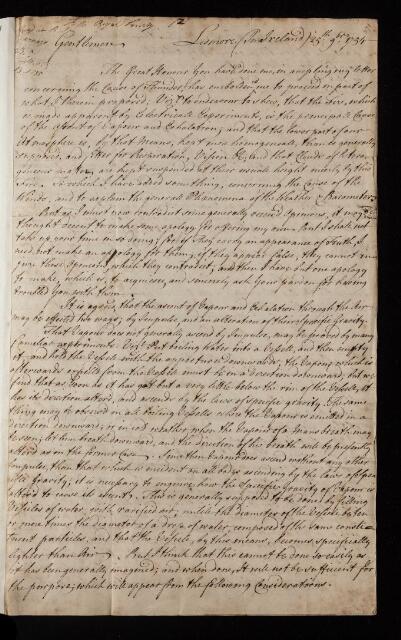 12
Gentlemen Lismore in Ireland 15th 1754
The Great Honour You have done me, in accepting my letter
concerning the Cause of Thunder, has embolden'd me to proceed in part of
what I therein proposed; Vizt. to endeavour to shew, that the Fire, which
is made apparent by Electrical Experiments, is the principal Cause
of the Ascent of Vapour and Exhalation; and that the lower part of our
Atmosphere is, by that Means, kept more homogeneal, than is generally
supposed, and fitter for Respiration, Vision &c, and that Clouds of Hetero-
geneous matter, are kept suspended at their usual height merely by this
Fire. To which I have added something, concerning the Cause of the
Winds, and to explain the general Phænomena of the Weather & Barometer.
But as I must now contradict some generally received Opinions, it may be
thought decent to make some apology for offering my own. But I shall not
take up your time in so doing; for if they carry an appearance of truth, I
need not make an apology for them; if they appear false, they cannot in-
jure those Opinions which they contradict, and then I have but one apology
to make, which is, to acquiesce, and sincerely ask Your pardon for having
troubled You with them.
It is agreed, that the ascent of Vapour and Exhalation through the Air
may be effected two ways; by Impulse, and an alteration of their Specific Gravity.
That Vapour does not generally ascend by Impulse, may be proved by many
familiar experiments. Vizt. Put boiling Water into a Vessell, and then
it, and hold the Vessell with the aperture downwards; the Vapour which is
afterwards expelled from the Vessell must be in a direction downwards; but we
find that as soon as it has got but a very little below the rim of the Vessell, it
has its direction altered, and ascends by the laws of Specific gravity. The same
thing may be observed in all boiling Vessells when the Vapour is emitted in a
direction downwards; or in cold weather when the Vapour of a Mans breath may
be seen, let him breath downwards, and the direction of the breath will be presently
altered as in the former Case. Since then Vapour does ascend without any other
Impulse, than that which is evident in all bodies ascending by the Laws of Speci-
fic Gravity; it is necessary to enquire how the Specific Gravity of Vapour is
altered to cause its ascent. This is generally supposed to be done by filling
Vesicles of water, with rarified air, untill the diameter of the Vesicle be ten
or more times the diameter of a drop of water, composed of the same consti-
tuent particles, and that the Vesicle, by this means, becomes specifically
lighter than Air. But I think that this cannot be done so easily as
it has been generally imagined; and when done, it will not be sufficient for
the purpose; which will appear from the following Considerations.